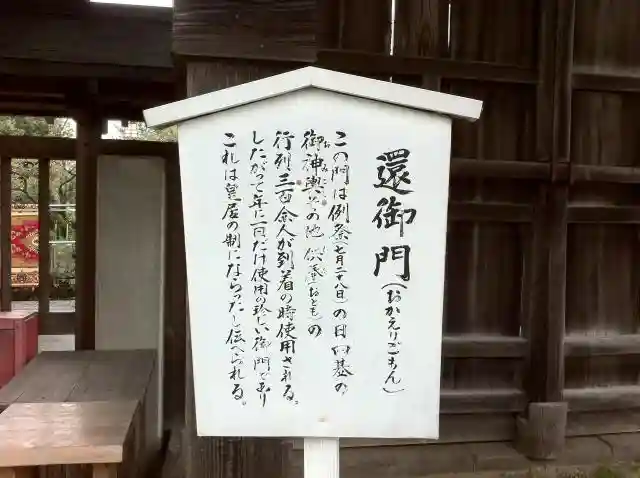 還御門
(おかえりごもん)
この門は例祭(七月二十八日)の日四基の
御神輿その他供奉(おとも)の
行列三百余人が到着の時使用される。
したがって年に一日だけ使用の珍しい御門であり
これは皇居の制にならったと伝へられる。